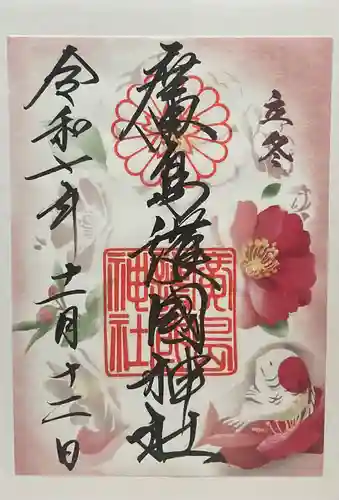 立冬
廣島護國神社
廣島
護國
神社
令和七年十一月十二日